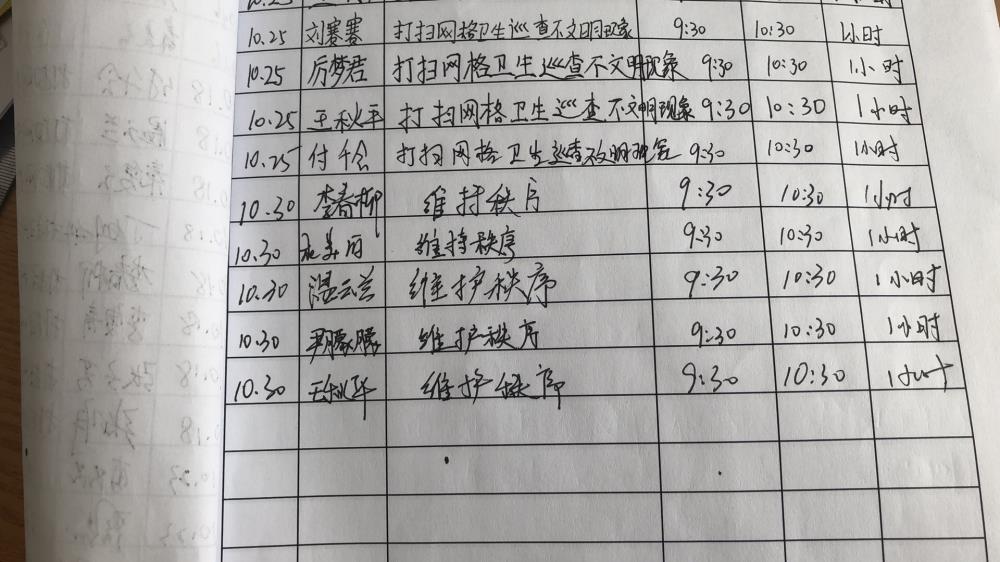 10.25 刘赛赛 打扫网格卫生巡查不文明现象 9:30 10:30 1小时
10.25 厉梦君 打扫网格卫生巡查不文明现象 9:30 10:30 1小时
10.25 王秋平 打扫网格卫生巡查不文明现象 9:30 10:30 1小时
10.25 付千会 打扫网格卫生巡查不文明现象 9:30 10:30 1小时
10.30 李春柳 维持秩序 9:30 10:30 1小时
10.30 维持秩序 9:30 10:30 1小时
10.30 温云兰 维护秩序 9:30 10:30 1小时
10.30 维护秩序 9:30 10:30 1小时
10.30 王秋平 维护秩序 9:30 10:30 1小时